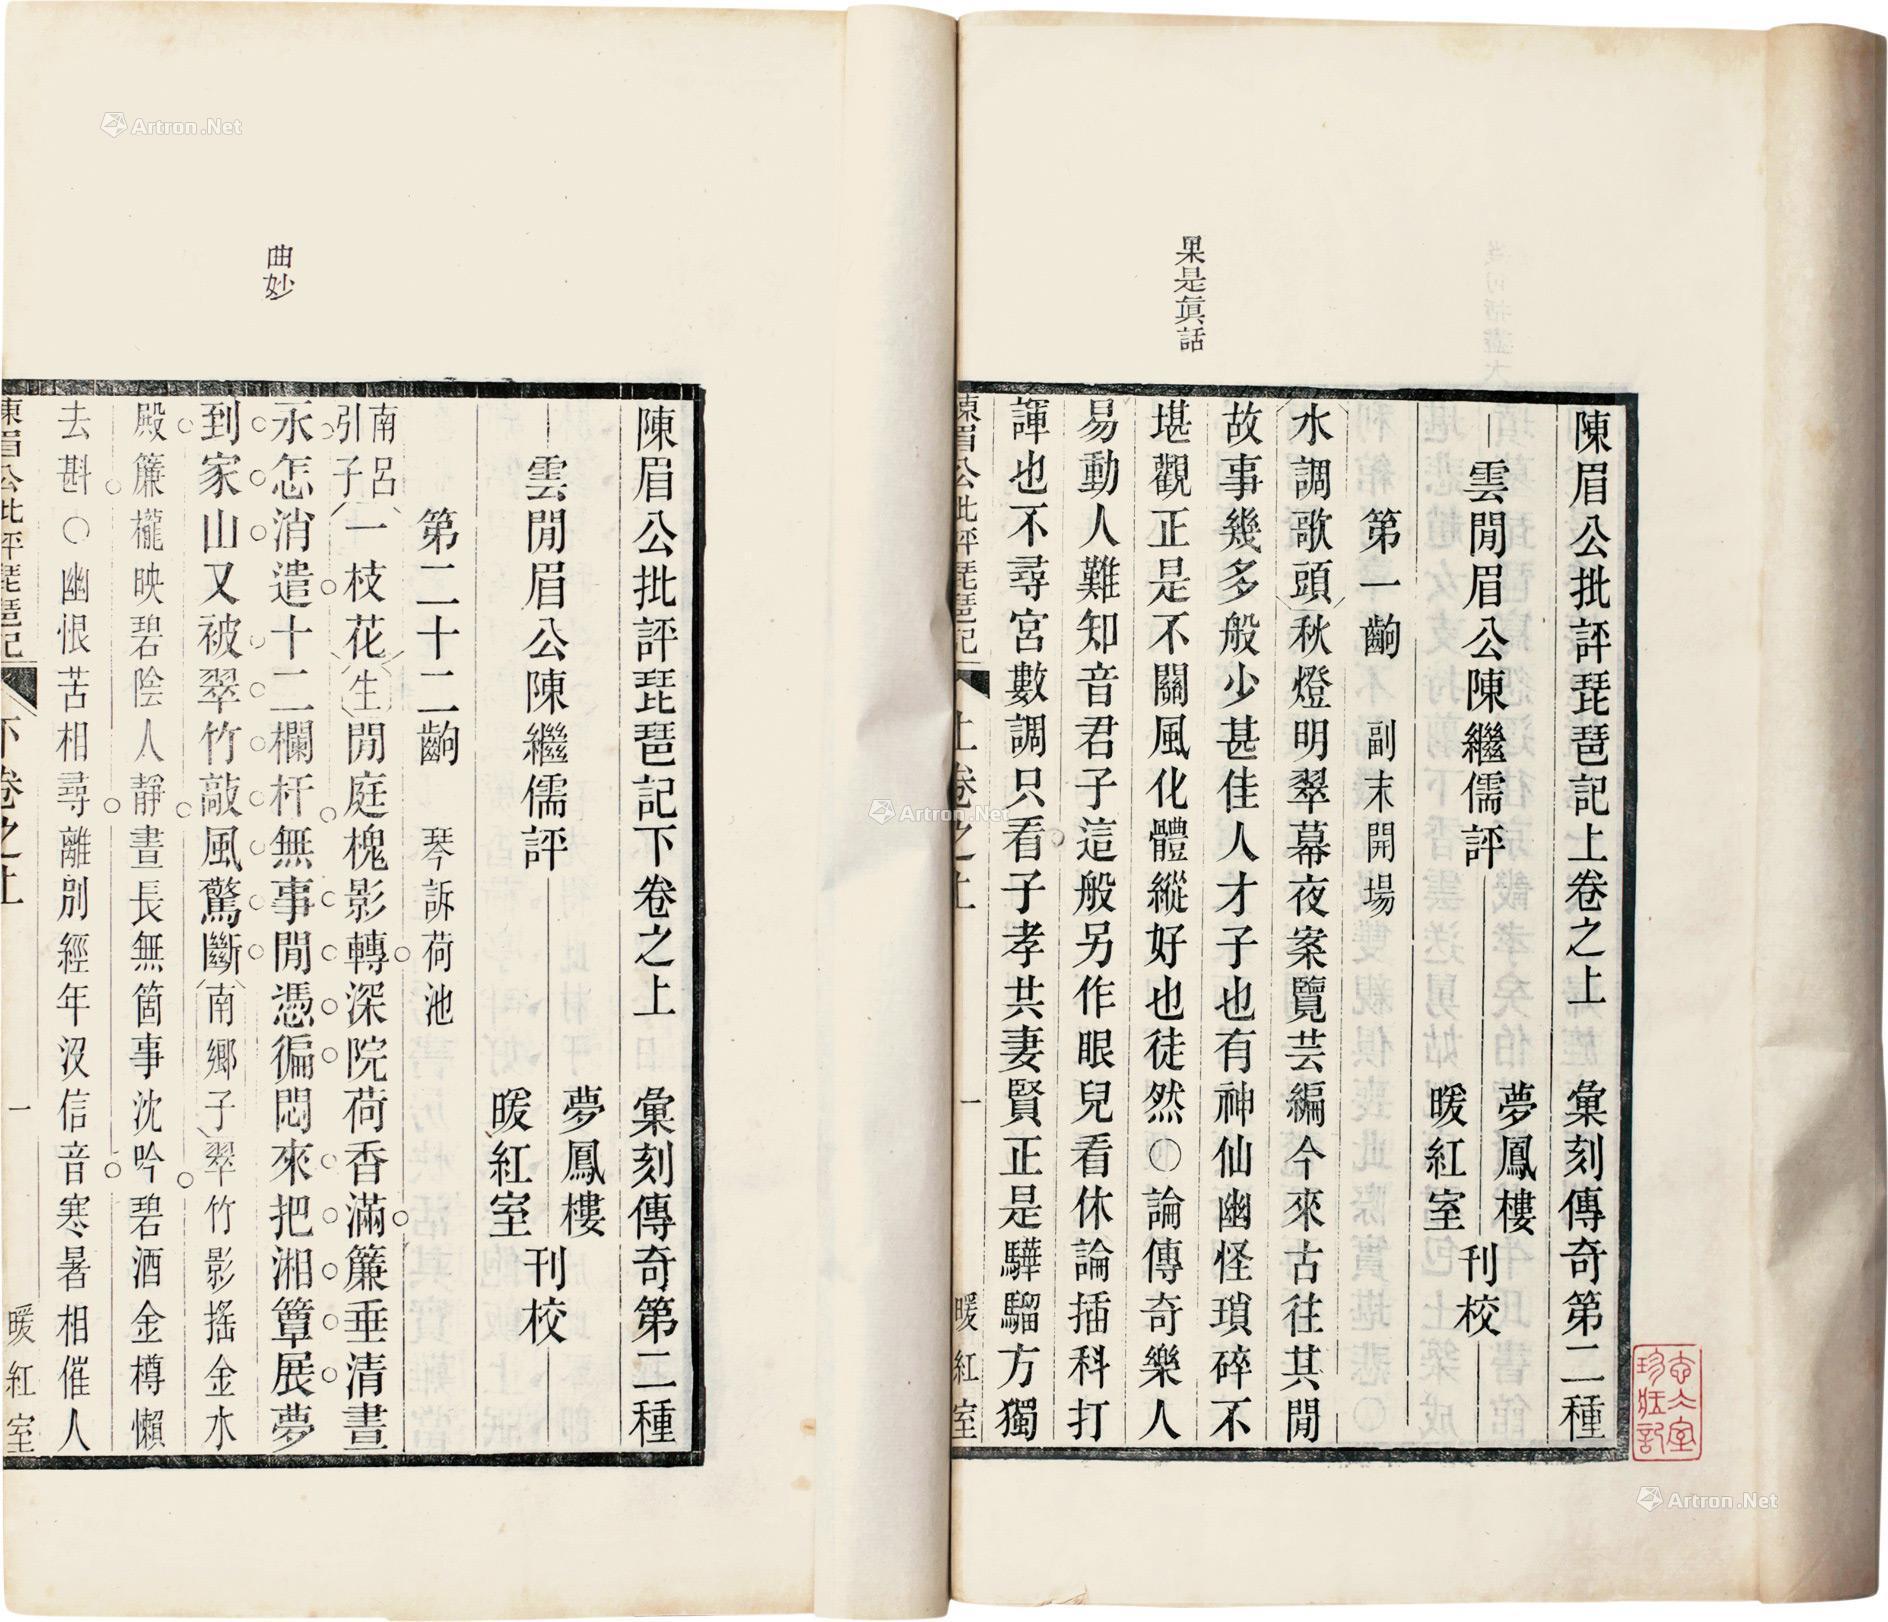 果是眞話
陳眉公批評琵琶記上卷之上 彙刻傳奇第二種
雲閒眉公陳繼儒評
夢鳳樓
暖紅室
刊校
第一齣 副末開場
水調歌頭秋燈明翠幕夜案覽芸編今來古往其閒
故事幾多般少甚佳人才子也有神仙幽怪瑣碎不
堪觀正是不關風化體縱好也徒然○論傳奇樂人
易動人難知音君子這般另作眼兒看休論插科打
諢也不尋宮數調只看子孝共妻賢正是驊騮方獨
陳眉公批評琵琶記 上卷之上 一 暖紅室
曲妙
陳眉公批評琵琶記下卷之上 彙刻傳奇第二種
雲閒眉公陳繼儒評
夢鳳樓
暖紅室
刊校
第二十二齣 琴訴荷池
南呂引子一枝花生閒庭槐影轉深院荷香滿簾垂清晝
永怎消遣十二欄杆無事閒憑徧悶來把湘簟展夢
到家山又被翠竹敲風驚斷南鄉子翠竹影搖金水
殿簾櫳映碧陰人靜晝長無箇事沈吟碧酒金樽懶
去斟○幽恨苦相尋離別經年沒信音寒暑相催人
陳眉公批評琵琶記 下卷之上 一 暖紅室
Artron.Net
Artron.Net
Artron.Net